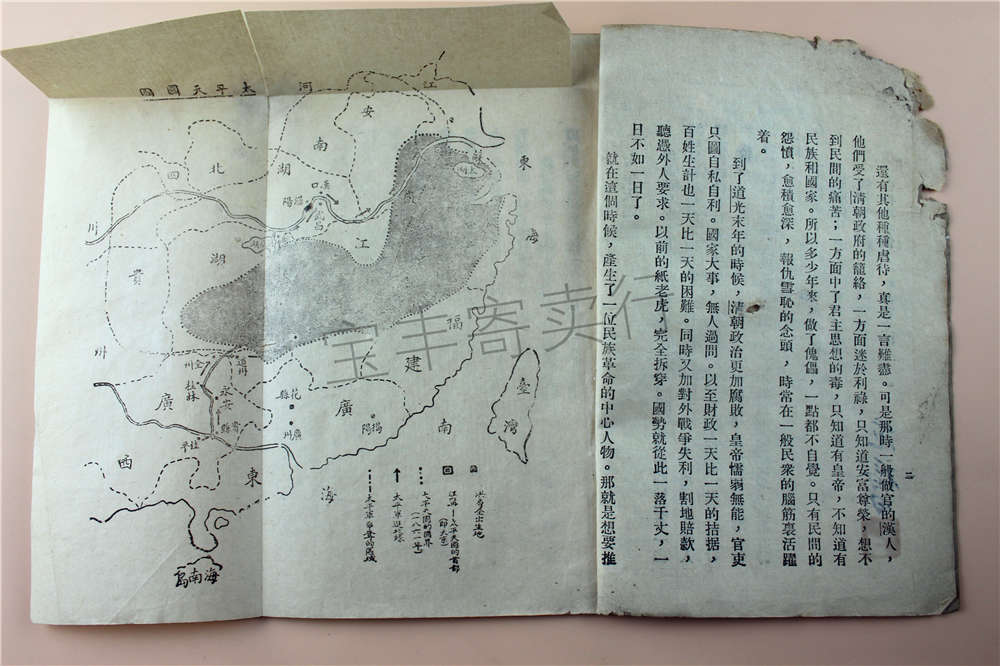 二
還有其他種種虐待，真是一言難盡。可是那時一般做官的漢人，
他們受了清朝政府的籠絡，一方面迷於利祿，只知道安富尊榮，想不
到民間的痛苦；一方面中了君主思想的毒，只知道有皇帝，不知道有
民族和國家。所以多少年來，做了傀儡，一點都不自覺。只有民間的
怨憤，愈積愈深，報仇雪恥的念頭，時常在一般民衆的腦筋裏活躍
着。
到了道光末年的時候，清朝政治更加腐敗，皇帝懦弱無能，官吏
只圖自私自利。國家大事，無人過問。以至財政一天比一天的拮据，
百姓生計也一天比一天的困難。同時又加對外戰爭失利，割地賠款，
聽憑外人要求。以前的紙老虎，完全拆穿。國勢就從此一落千丈，一
日不如一日了。
就在這個時候，產生了一位民族革命的中心人物。那就是想要推
太平天國圖
河
南
江
蘇
安
徽
湖
北
四
川
漢口
武昌
江
湖
貴
州
福
建
全州
桂林
永安
桂平
花縣
廣州
揭陽
廣
西
廣
東
臺
灣
東
海
南
海
海南島
洪秀全出生地
太平軍進攻線
宝丰寄卖行